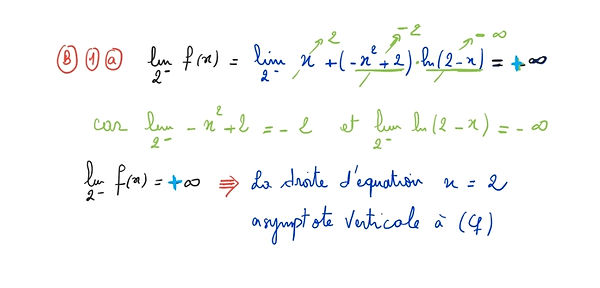 B 1 a lim 2⁻ f(x) = lim 2⁻ x ↗ 2 + (-x² + 2) ↗ -2 · ln(2-x) ↗ -∞ = +∞
car lim 2⁻ -x² + 2 = -2 et lim 2⁻ ln(2-x) = -∞
lim 2⁻ f(x) = +∞ ⇒ La droite d'equation x = 2
asymptote Verticale à (Cf)